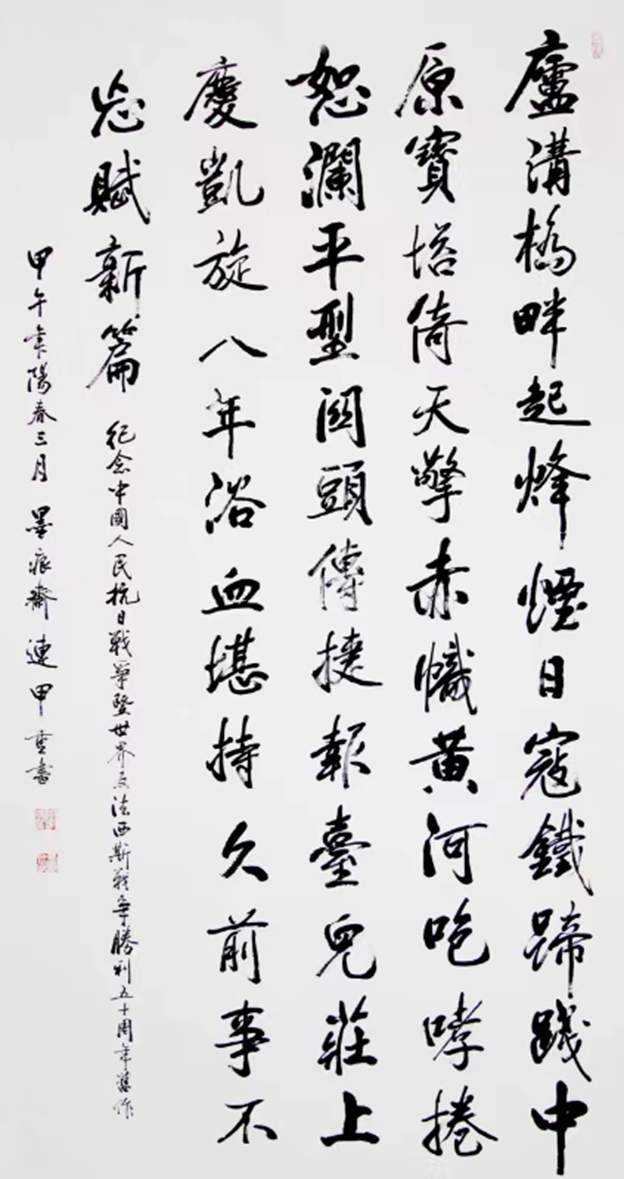 廬溝橋畔起烽煙日寇鐵蹄踐中
原寶塔倚天擎赤幟黃河咆哮捲
怒瀾平型關頭傳捷報臺兒莊上
慶凱旋八年浴血堪持久前事不
忘賦新篇 紀念中國人民抗日戰爭暨世界反法西斯戰爭勝利五十周年舊作
甲午年陽春三月 墨痕齋 連甲書